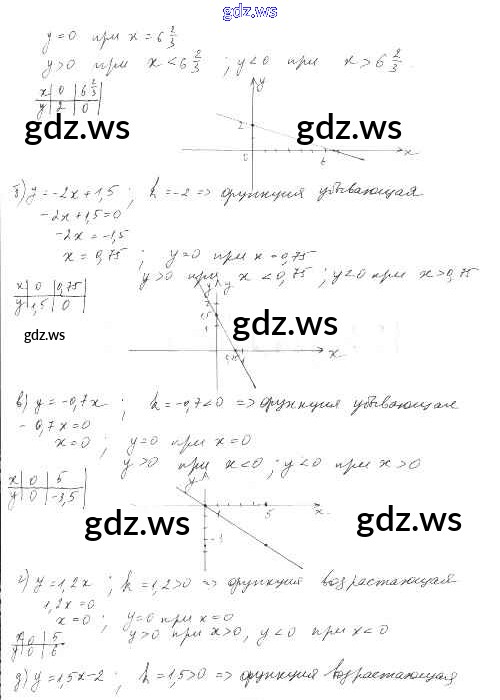 gdz.ws
y=0 при x=6 2/3
y>0 при x<6 2/3 ; y<0 при x>6 2/3.
x | 0 | 6 2/3
y | 2 | 0
y
2
0 6 x
gdz.ws gdz.ws
б) y=-2x+1,5 ; k=-2 => функция убывающая
-2x+1,5=0
-2x=-1,5
x=0,75 ; y=0 при x=0,75
y>0 при x<0,75 ; y<0 при x>0,75
x | 0 | 0,75
y | 1,5 | 0
y
1,5
1
x
gdz.ws gdz.ws
в) y=-0,7x ; k=-0,7<0 => функция убывающая
-0,7x=0
x=0 ; y=0 при x=0
y>0 при x<0 ; y<0 при x>0
x | 0 | 5
y | 0 | -3,5
y
1 5 x
-1
gdz.ws gdz.ws
г) y=1,2x ; k=1,2>0 => функция возрастающая
1,2x=0
x=0 ; y=0 при x=0
y>0 при x>0, y<0 при x<0
x | 0 | 5
y | 0 | 6
д) y=1,5x-2 ; k=1,5>0 => функция возрастающая
gdz.ws